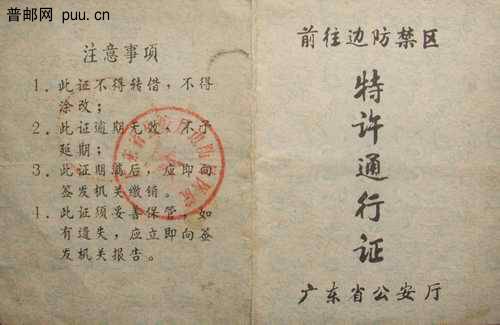 普邮网 puu.cn
注意事项
1. 此证不得转借,不得
涂改;
2. 此证逾期无效,不予
延期;
3. 此证期满后,应即向
签发机关缴销。
4. 此证须妥善保管,如
有遗失,应立即向签
发机关报告。
前往边防禁区
特许通行证
广东省公安厅